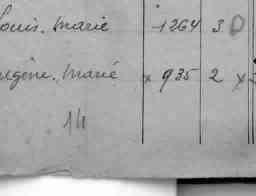 Louis. Marie 1264 3 0
Eugène. Marie x 935 2 x
14